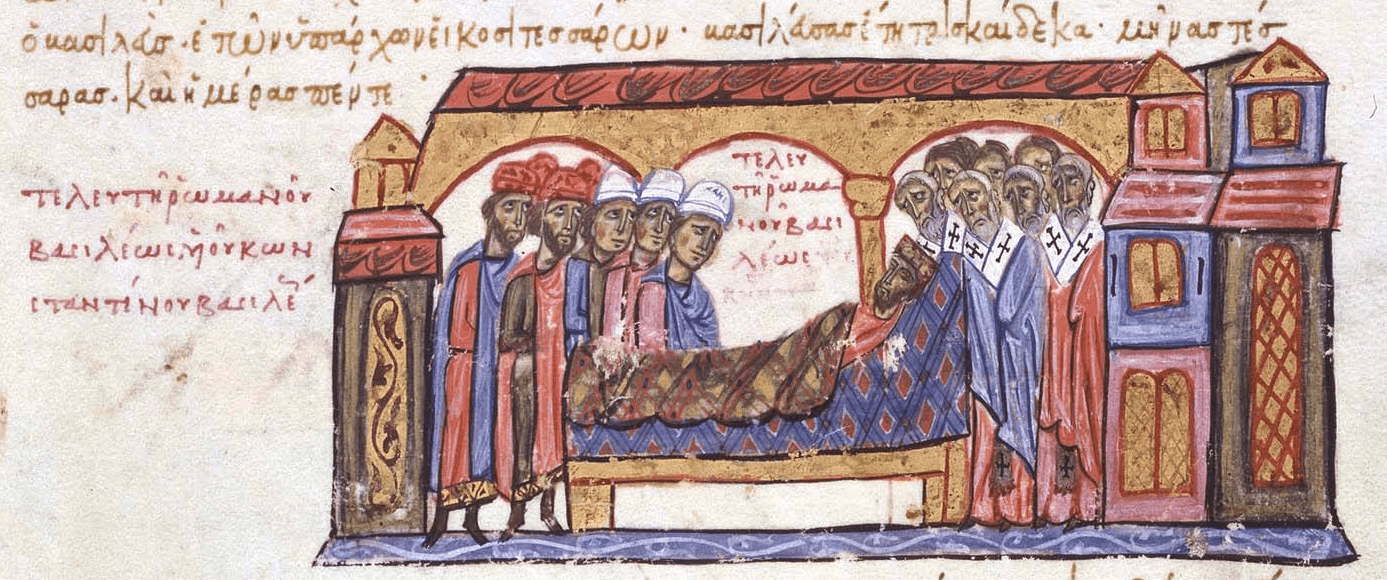 ὁ βασιλεύς· ἐτῶν ὑπάρχων εἴκοσι τεσσάρων· βασιλεύσας ἔτη τρισκαίδεκα· μῆνας τέσ
σαρας· καὶ ἡμέρας πέντε
ΤΕΛΕΥΤΗ ῬΩΜΑΝΟΥ
ΒΑΣΙΛΕΩΣ ΥΙΟΥ ΚΩΝ
ΣΤΑΝΤΙΝΟΥ ΒΑΣΙΛΕ
ΤΕΛΕΥ
ΤΗ ῬΩΜΑ
ΝΟΥ ΒΑΣΙ
ΛΕΩΣ